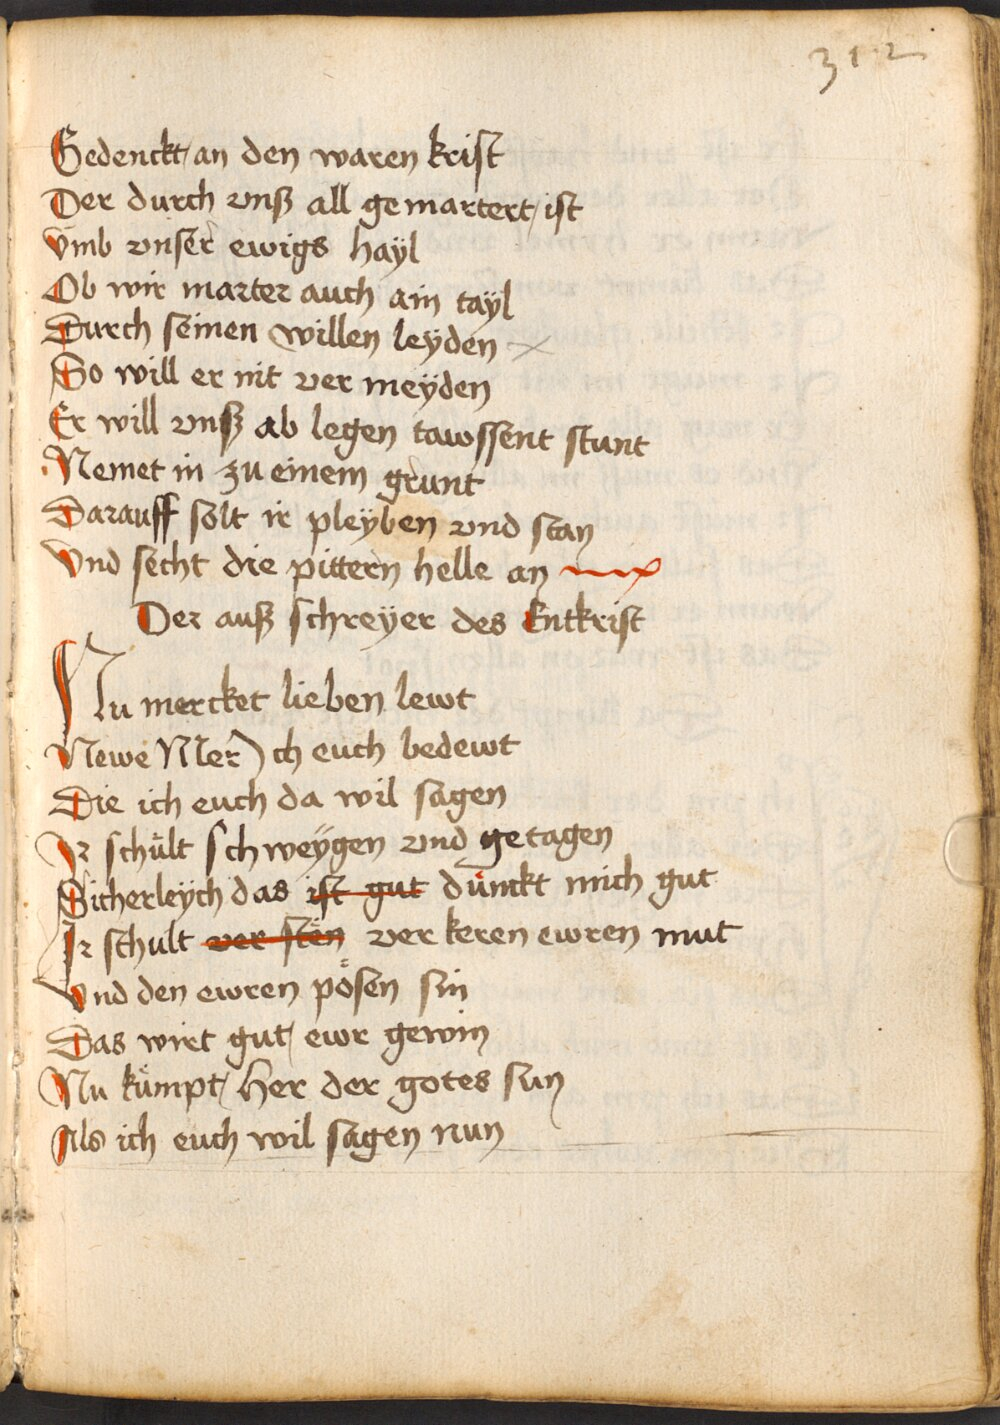 312
Gedenckt an den waren krist
Der durch vnß all gemartert ist
Vmb vnser ewigs haÿl
Ob wir marter auch ain taÿl
Durch seinen willen leÿden
So will er nit ver meÿden
Er will vnß ab legen tawssent stunt
Nemet in zu einem grunt
Darauff solt ir pleÿben vnd stan
Vnd secht die pittern helle an
Der auß schreÿer des Entkrist
Nu mercket lieben lewt
Newe Mer ich euch bedewt
Die ich euch da wil sagen
Ir schült schweÿgen vnd getagen
Sicherleÿch das ist gut dünckt mich gut
Ir schult ver sten ver keren ewren mut
Vnd den ewren pösen sin
Das wirt gut ewr gewin
Nu kümpt her der gotes sun
Als ich euch wil sagen nun